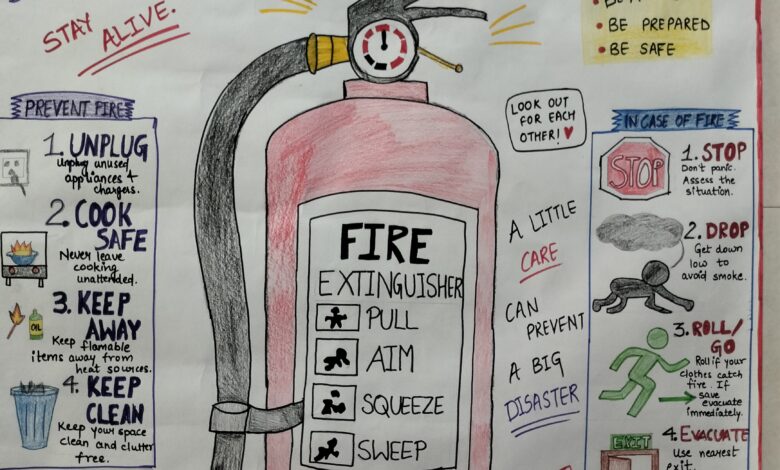 STAY
ALIVE.
• BE PREPARED
• BE SAFE
PREVENT FIRE
1. UNPLUG
unplug unused
appliances &
chargers.
2. COOK
SAFE
Never leave
cooking
unattended.
3. KEEP
AWAY
Keep flamable
items away from
heat sources.
OIL
4. KEEP
CLEAN
Keep your space
clean and clutter
free.
FIRE
EXTINGUISHER
PULL
AIM
SQUEEZE
SWEEP
LOOK OUT
FOR EACH
OTHER!
A LITTLE
CARE
CAN
PREVENT
A BIG
DISASTER
IN CASE OF FIRE
STOP
1. STOP
Don't panic.
Assess the
situation.
2. DROP
Get down
low to
avoid smoke.
3. ROLL/
GO
Roll if your
clothes catch
fire. If
save
evacuate
immediately.
4. EVACUATE
EXIT
Use nearest
exit.